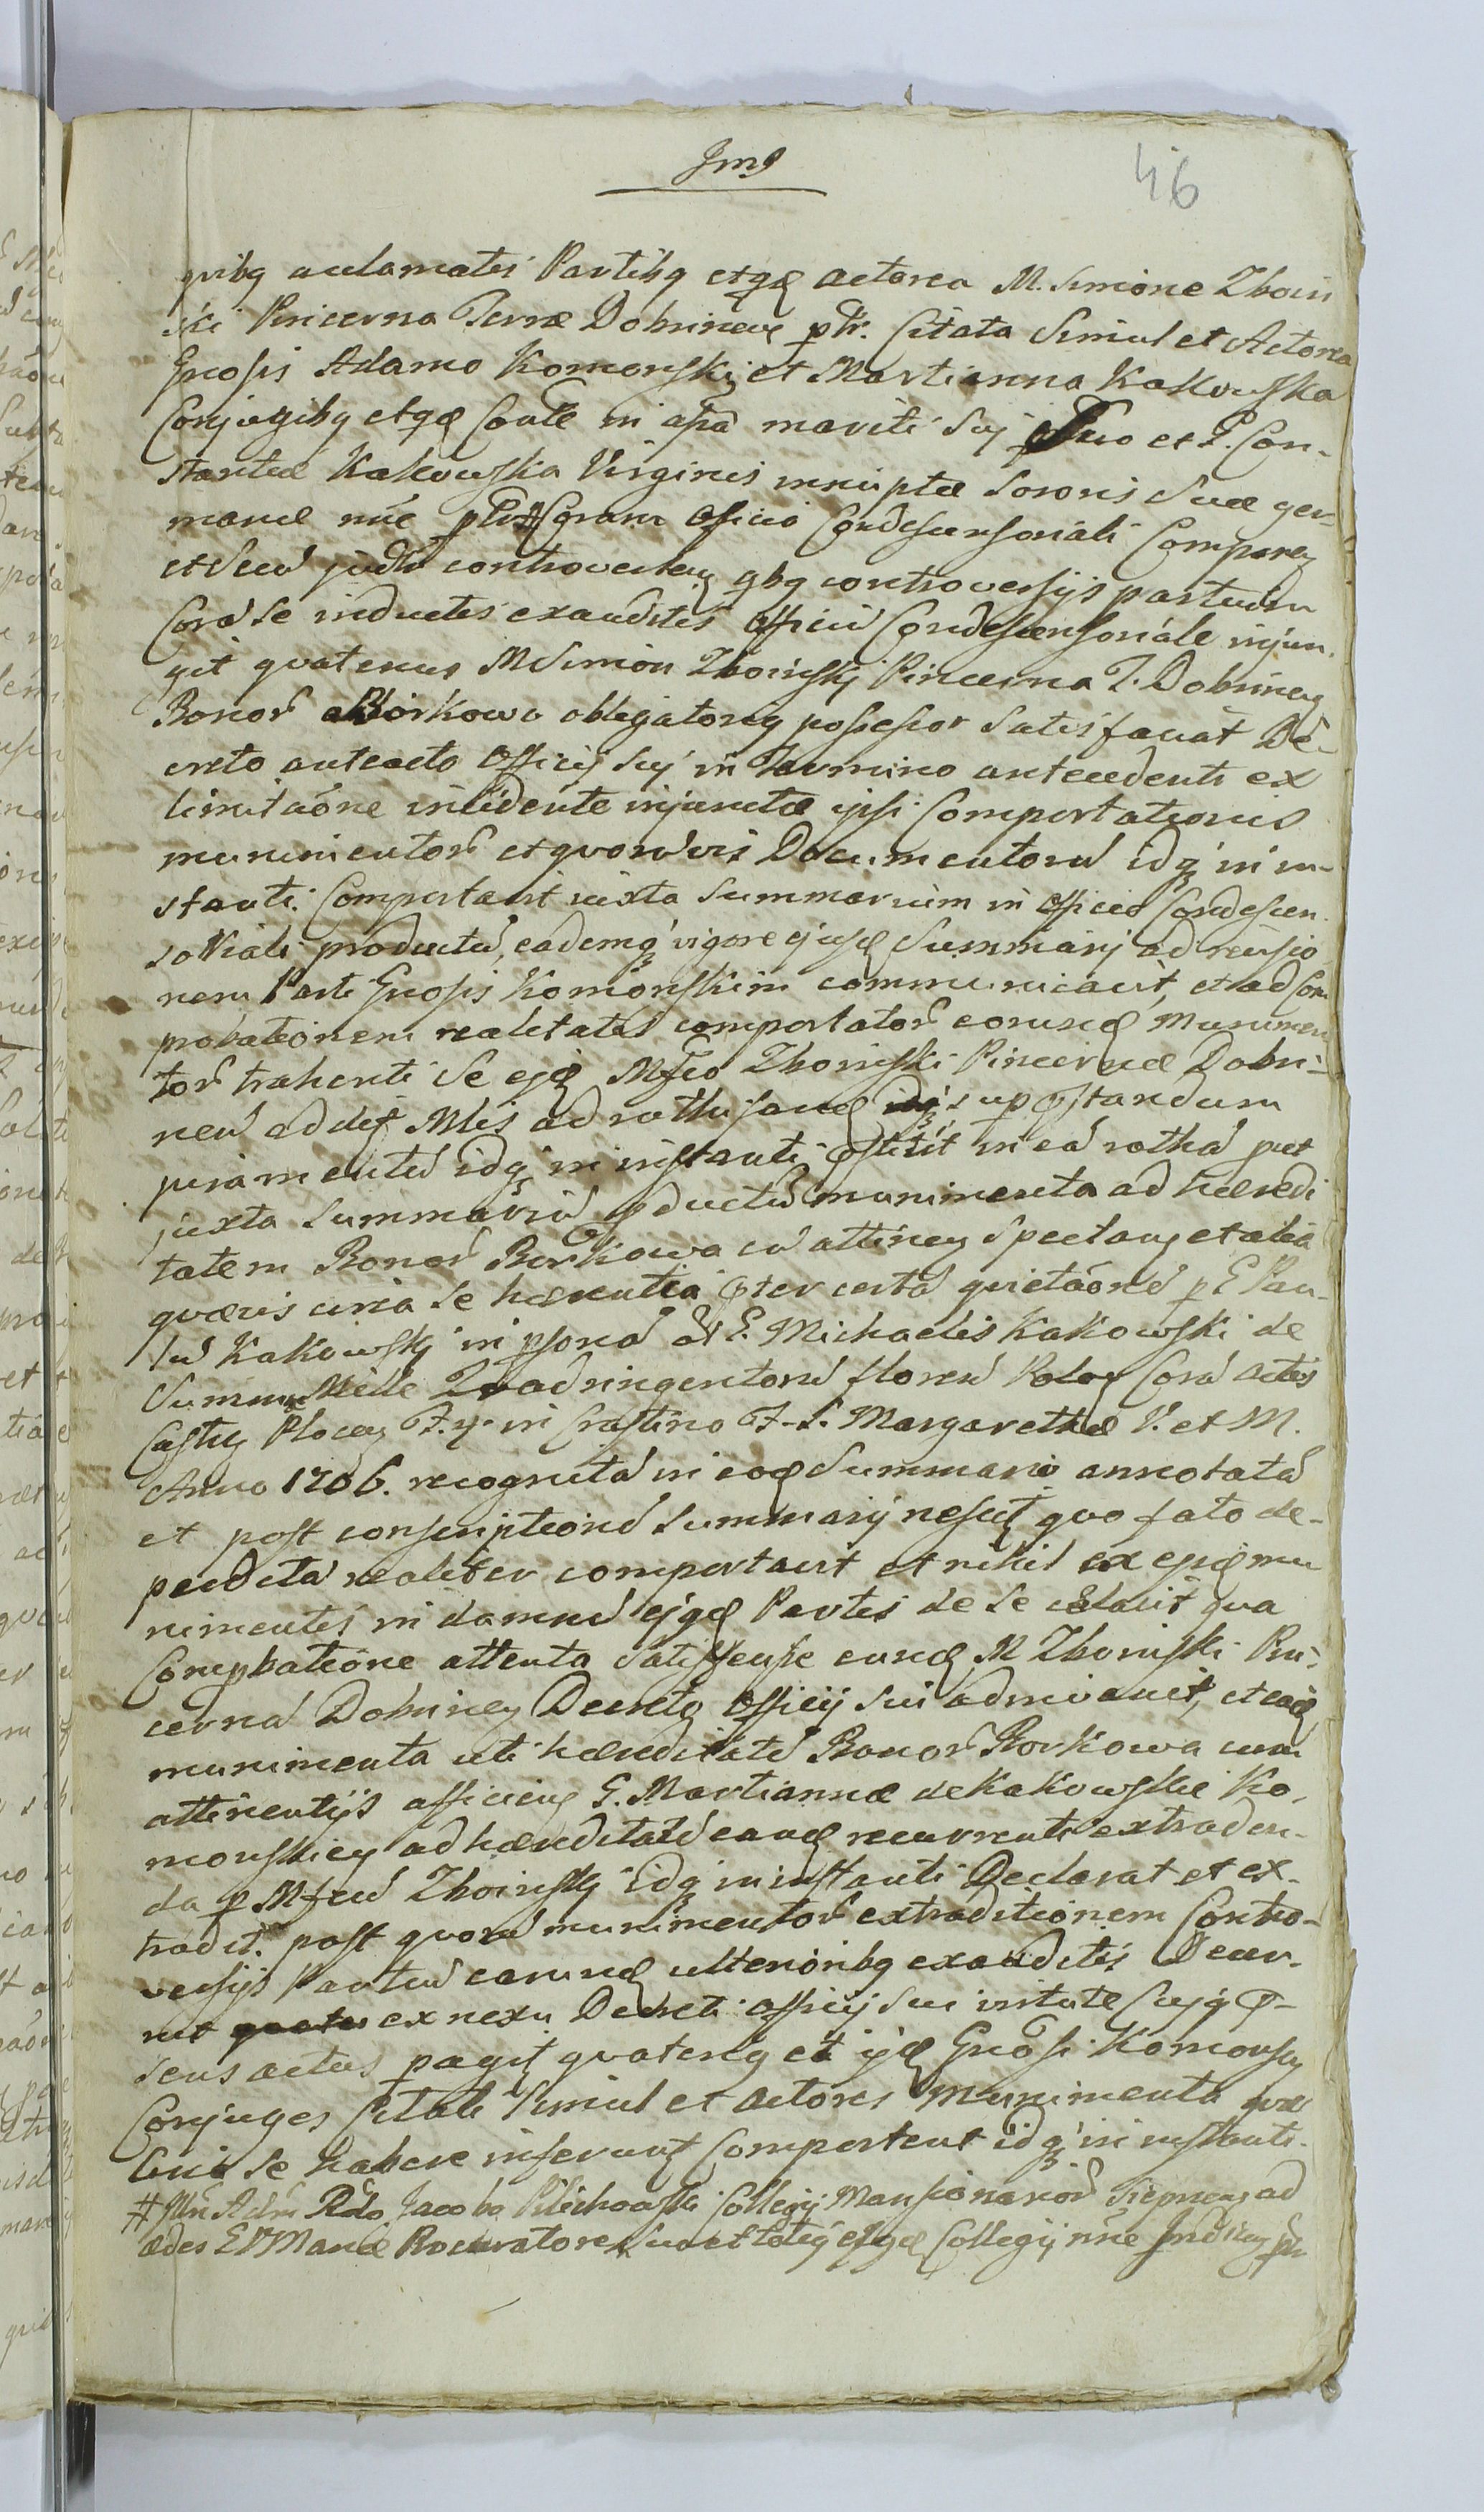 Jms
46
quibq acclamatis Partibq etqȝ actorea M. Simone Zboin
ski Pincerna Terræ Dobrinen ptr. Citata Simul et Actorea
Gnosis Adamo Komorskj et Martianna Kakowska
Conjugibq etqȝ Conte in assa mariti Sui suo et G. Con-
stantiæ Kakowska Virginis innuptæ Sororis Suæ ger-
manæ nñe # Coram Officio Condescensoriali Comparen
et Secu judtr controverten qbq controversijs partium
Corã Se inductis exauditis Officiũ Condescensoriale injun-
git quatenus M Simon Zboinskj Pincerna T. Dobrinen
Bonor Borkowo obligatorig possessor Satisfaciat De-
creto anteacto Officij Sui in Termino antecedenti ex
limitaõne incidente injunctæ ipsi Comportationis
munimentor et quorũvis Documentorũ idq in in-
stanti. Comportavit iuxta Summarium in Officio Condescen-
soriali productũ, eademq vigore ejusd Summarij ad revisio
nem Parti Gnosis Komorskim communicavit, et ad Com
probationem realitatis comportator eorund Munimen
tor trahenti Se ejd Mfco Zboinski Pincernæ Dobri-
nen addit Mlis ad rotha suppræstandum
juramentũ idq in instanti præstitit in eã rothã put
juxta Summariũ pductũ munimenta ad hæredi
tatem Bonor Borkowa cũ attinen Spectan et alia
quævis circa Se hærentia præter certã quietaõnẽ p G Pau-
lũ Kakowskj in psonã G. Michaelis Kakowski de
Summa Mille Quadringentorũ florenũ Polon Corã Actis
Casten Plocen F. 4. in Crastino F. S. Margarethæ V. et M.
Anno 1706. recognitã in eod Summario annotatã
et post conscriptionẽ Summarij nescit quo fato de-
perditã realiter comportavit et nihil ex ejsd mu
nimentis in damnũ ejqd Partis de Se celavit qua
Comprobatione attenta Satisfecisse eund M Zboinski Pin-
cernã Dobrinen Decreto Officij Sui adinvenit, et ead
munimenta uti hæreditatẽ Bonor Borkowa cum
attinentijs afficien G. Martiannæ de Kakowskie Ko-
morskiey ad hæreditatẽ eand recurrenti extraden-
da p Mfcũ Zboinskj idq in instanti Declarat et ex-
tradit. post quorũ munimentor extraditionem Contro-
versijs Partiũ earund ulterioribq exauditis Decer-
nit ex nexu Decreti Officij Sui virtute Cujq præ-
sens actus peragit quatenq et ijd Gnosi Komorscy
Conjuges Citati Simul et Actores Munimenta quæ
circa Se habere inferunt Comportent idq in instanti.
# Adm Rdo Jacobo Pilichowski Collegij Mansionarior Sierpcen ad
ædes B V Mariæ Procuratore Suo et totiq ejqd Collegij nñe